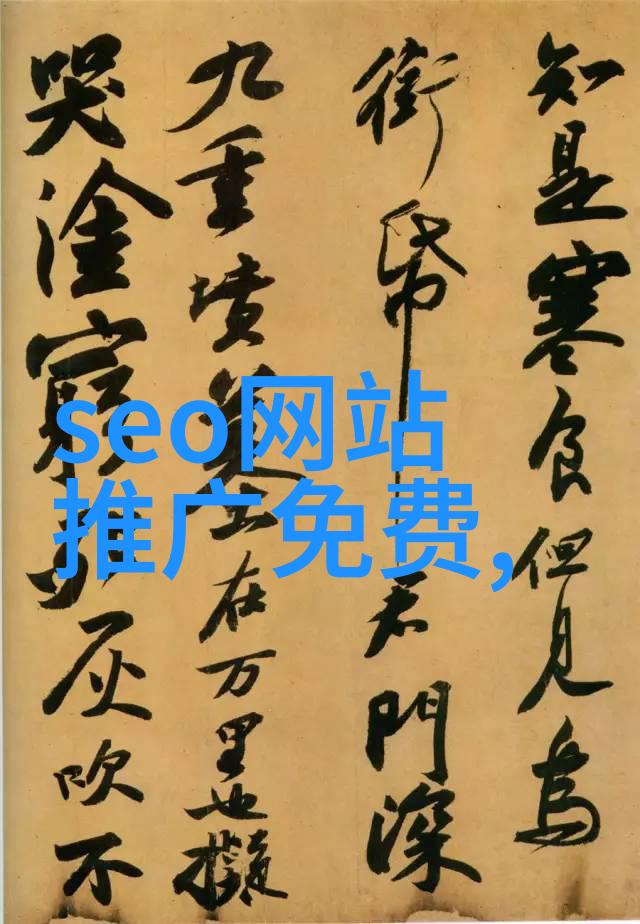 知是寒食但見烏
銜帋君門深
九重墳墓在万里也擬
哭塗窮死灰吹不
seo网站
推广免费,